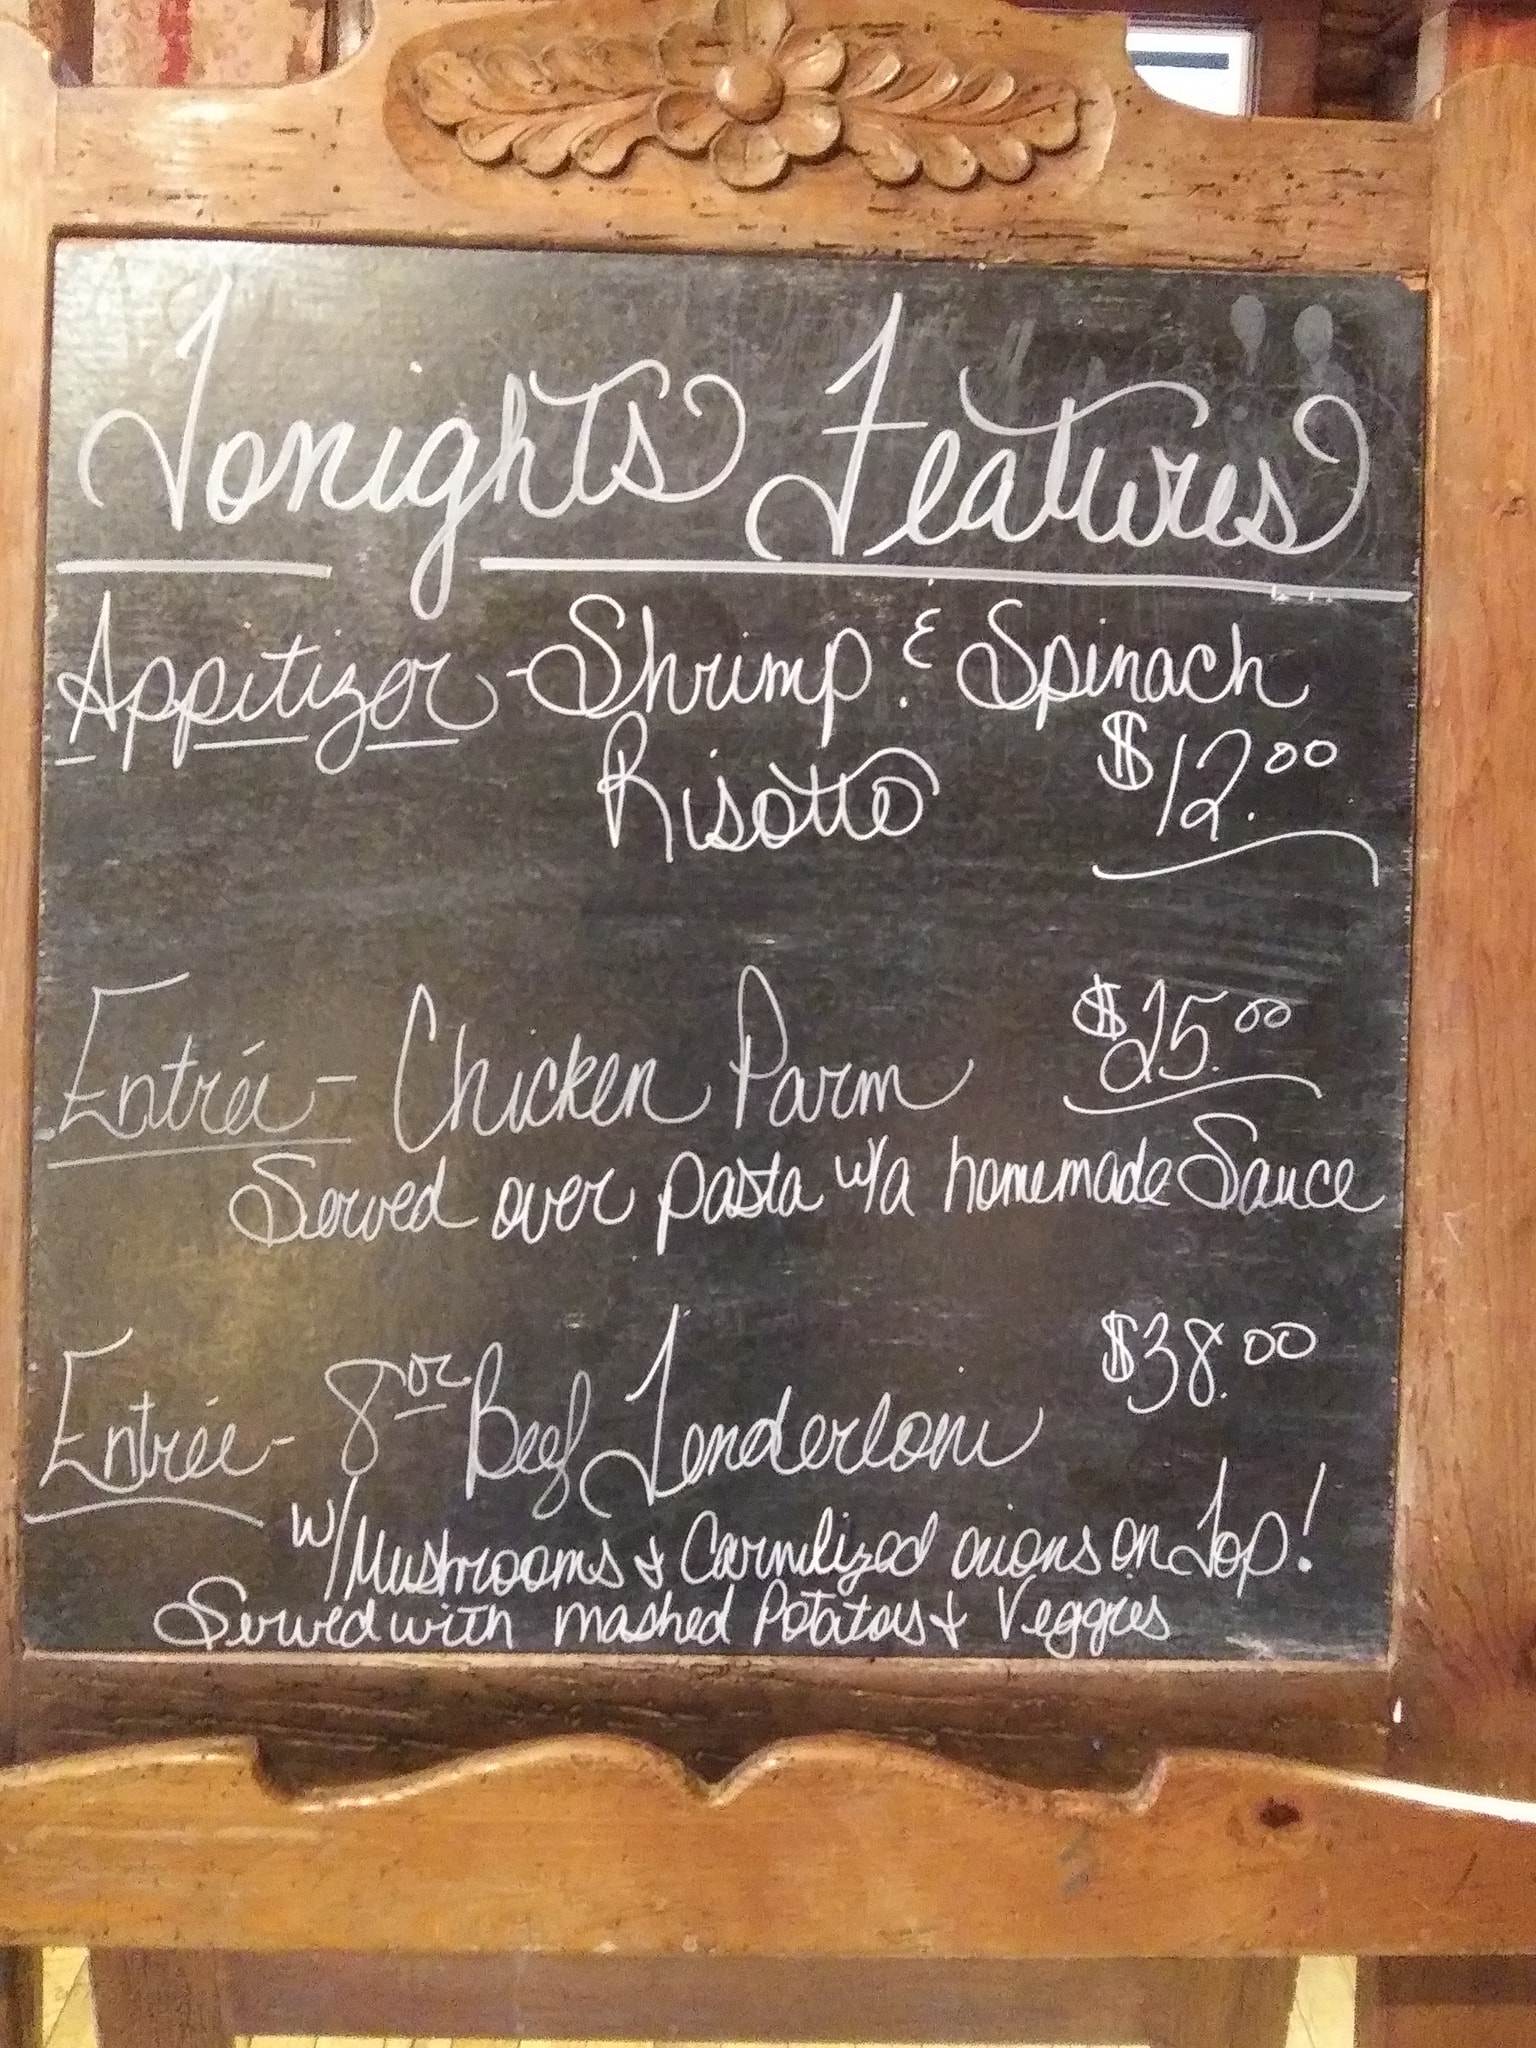 Tonights Features
Appitizer - Shrimp & Spinach
Risotto $12.00
Entrée - Chicken Parm $25.00
Served over pasta w/a homemade Sauce
Entrée - 8oz Beef Tenderloin $38.00
w/Mushrooms & Carmilized onions on Top!
Served with mashed Potatoes & Veggies